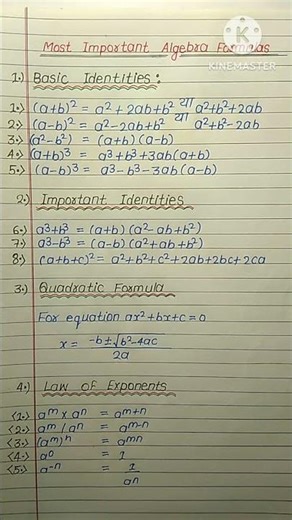 KINEMASTER
Most Important Algebra Formulas
1.) Basic Identities :
1.) (a+b)² = a²+2ab+b² या a²+b²+2ab
2.) (a-b)² = a²-2ab+b² या a²+b²-2ab
3.) (a²-b²) = (a+b) (a-b)
4.) (a+b)³ = a³+b³+3ab(a+b)
5.) (a-b)³ = a³-b³-3ab(a-b)
2.) Important Identities
6.) a³+b³ = (a+b) (a²-ab+b²)
7.) a³-b³ = (a-b) (a²+ab+b²)
8.) (a+b+c)² = a²+b²+c²+2ab+2bc+2ca
3.) Quadratic Formula
For equation ax²+bx+c=0
x = -b±√b²-4ac / 2a
4.) Law of Exponents
<1.> aᵐ x aⁿ = aᵐ⁺ⁿ
<2.> aᵐ / aⁿ = aᵐ⁻ⁿ
<3.> (aᵐ)ⁿ = aᵐⁿ
<4.> a⁰ = 1
<5.> a⁻ⁿ = 1 / aⁿ